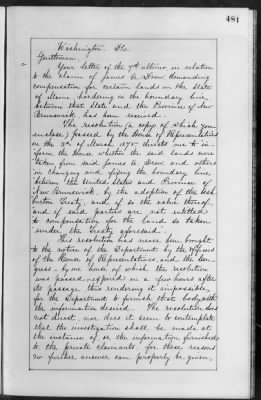 481
Washington, D.C.
Gentlemen
Your letter of the 7th ultimo in relation
to the claim of James A. Drew demanding
compensation for certain lands in the State
of Maine bordering on the boundary line,
between that State and the Province of New
Brunswick, has been received.
The resolution (a copy of which you
enclose) passed by the House of Representatives
on the 3d of March 1875 directs me to in-
form the House whether the said lands were
taken from said James A. Drew and others
in changing and fixing the boundary line
between the United States and Province of
New Brunswick, by the adoption of the Ash-
burton Treaty, and if so the value thereof,
and if said parties are not entitled
to compensation for the lands so taken
under the Treaty aforesaid.
This resolution has never been brought
to the notice of the Department by the officers
of the House of Representatives, and the Con-
gress - by one house of which the resolution
was passed - expired in a few hours after
its passage thus rendering it impossible,
for the Department to furnish that body with
the information desired. The resolution does
not direct, nor does it seem to contemplate
that the investigation shall be made at
the instance of, or the information furnished
to the private claimants for these reasons
no further answer can properly be given,